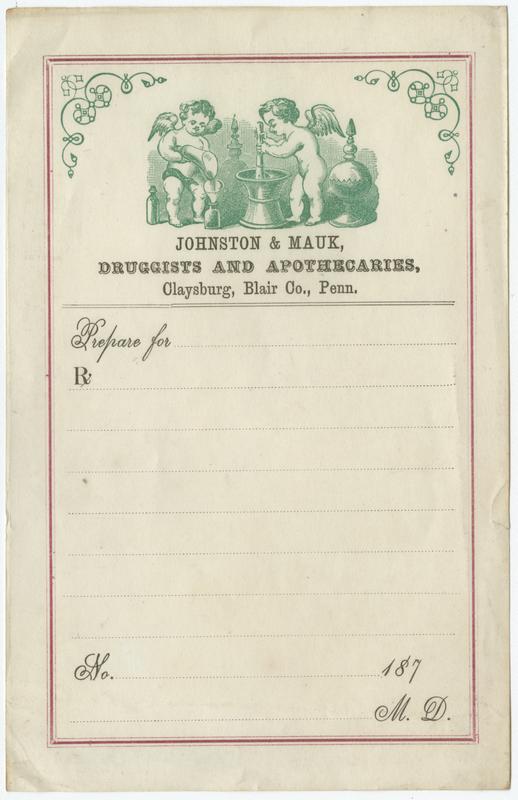 JOHNSTON & MAUK,
DRUGGISTS AND APOTHECARIES,
Claysburg, Blair Co., Penn.
Prepare for
℞
No. 187
M. D.